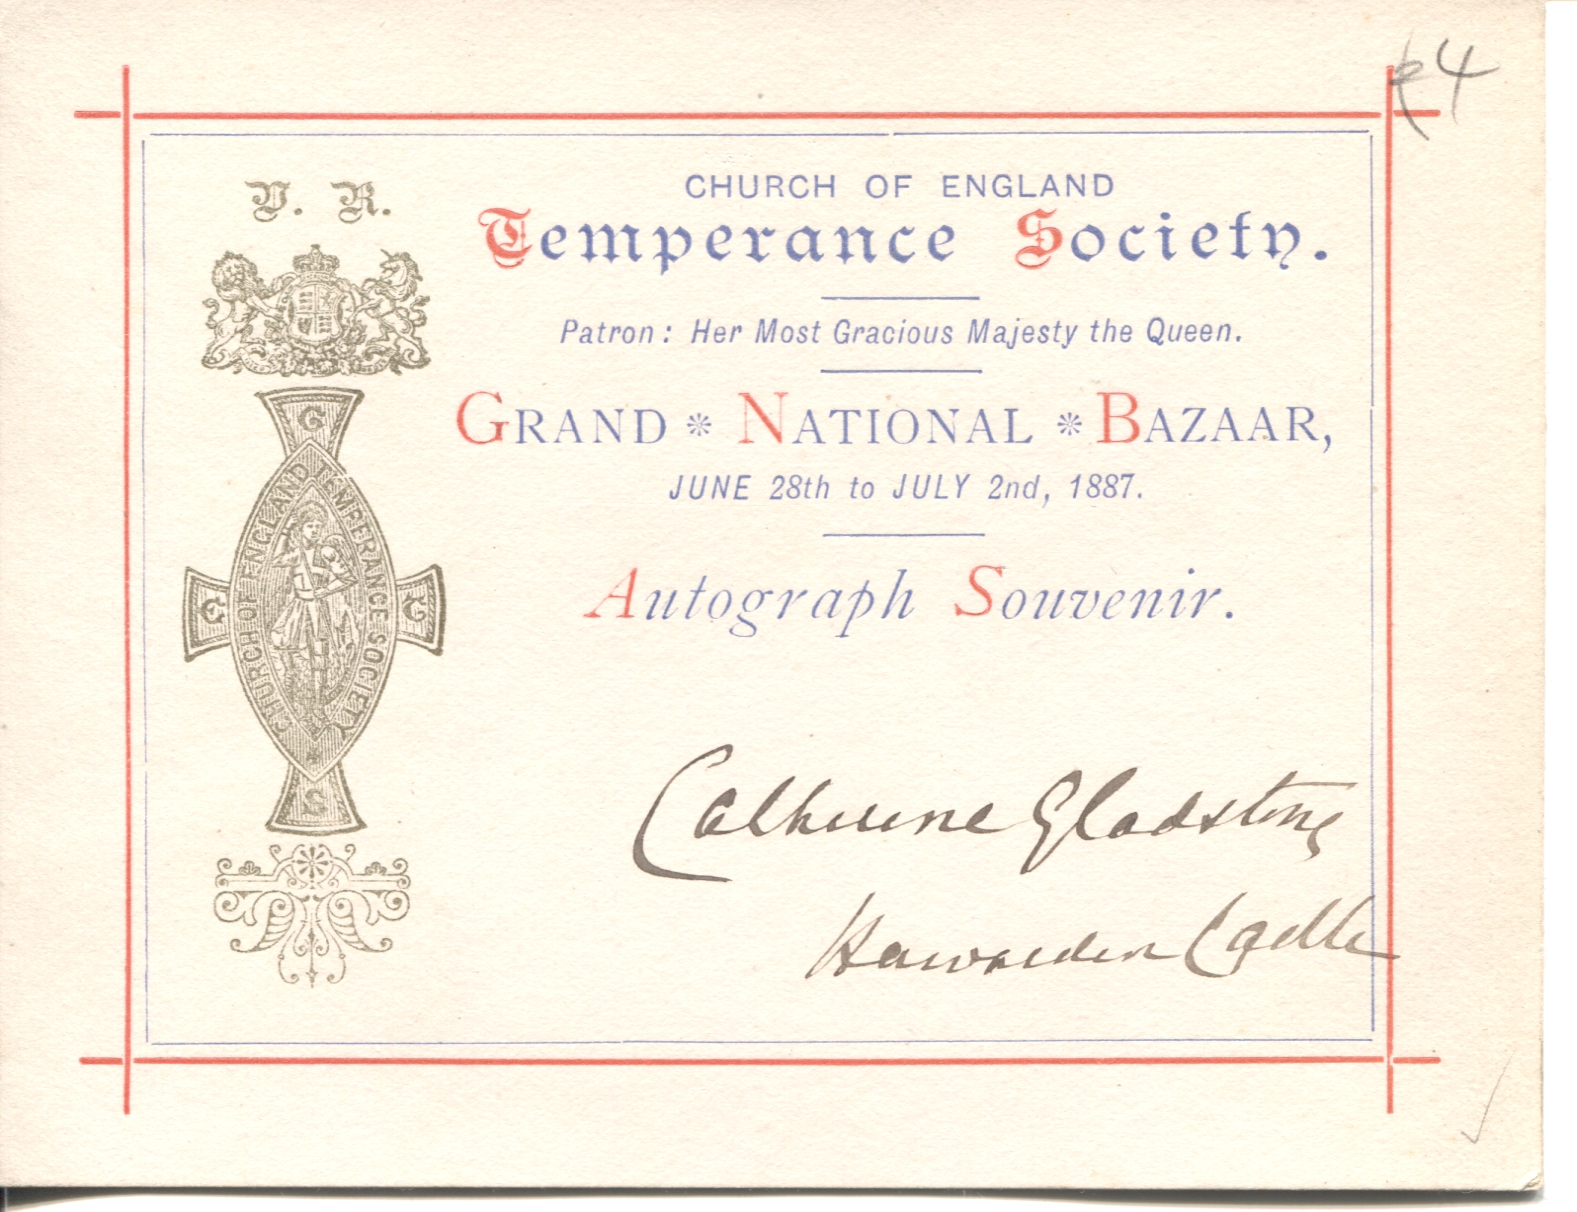 V. R.
CHURCH OF ENGLAND
Temperance Society.
Patron: Her Most Gracious Majesty the Queen.
GRAND * NATIONAL * BAZAAR,
JUNE 28th to JULY 2nd, 1887.
Autograph Souvenir.
CHURCH OF ENGLAND TEMPERANCE SOCIETY
S
Catherine Gladstone
Hawarden Castle